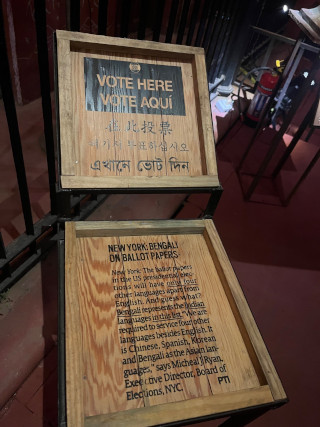 VOTE HERE
VOTE AQUÍ
在此投票
여기서 투표하십시오
এখানে ভোট দিন
NEW YORK: BENGALI
ON BALLOT PAPERS
New York: The ballot papers
in the US presidential elec-
tions will have only four
other languages apart from
English. And guess what?
Bengali represents the Indian
languages in this list. "We are
required to service four other
languages besides English. It
is Chinese, Spanish, Korean
and Bengali as the Asian lan-
guages," says Michael J Ryan,
Executive Director, Board of
Elections, NYC. PTI